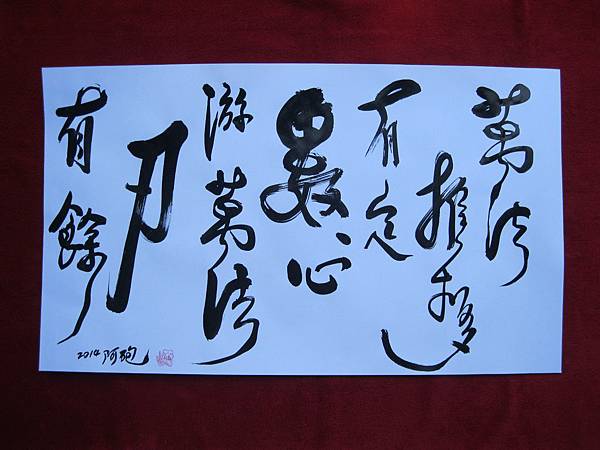 萬法
推
有定
數心
游萬法
刃
有餘
2014 阿